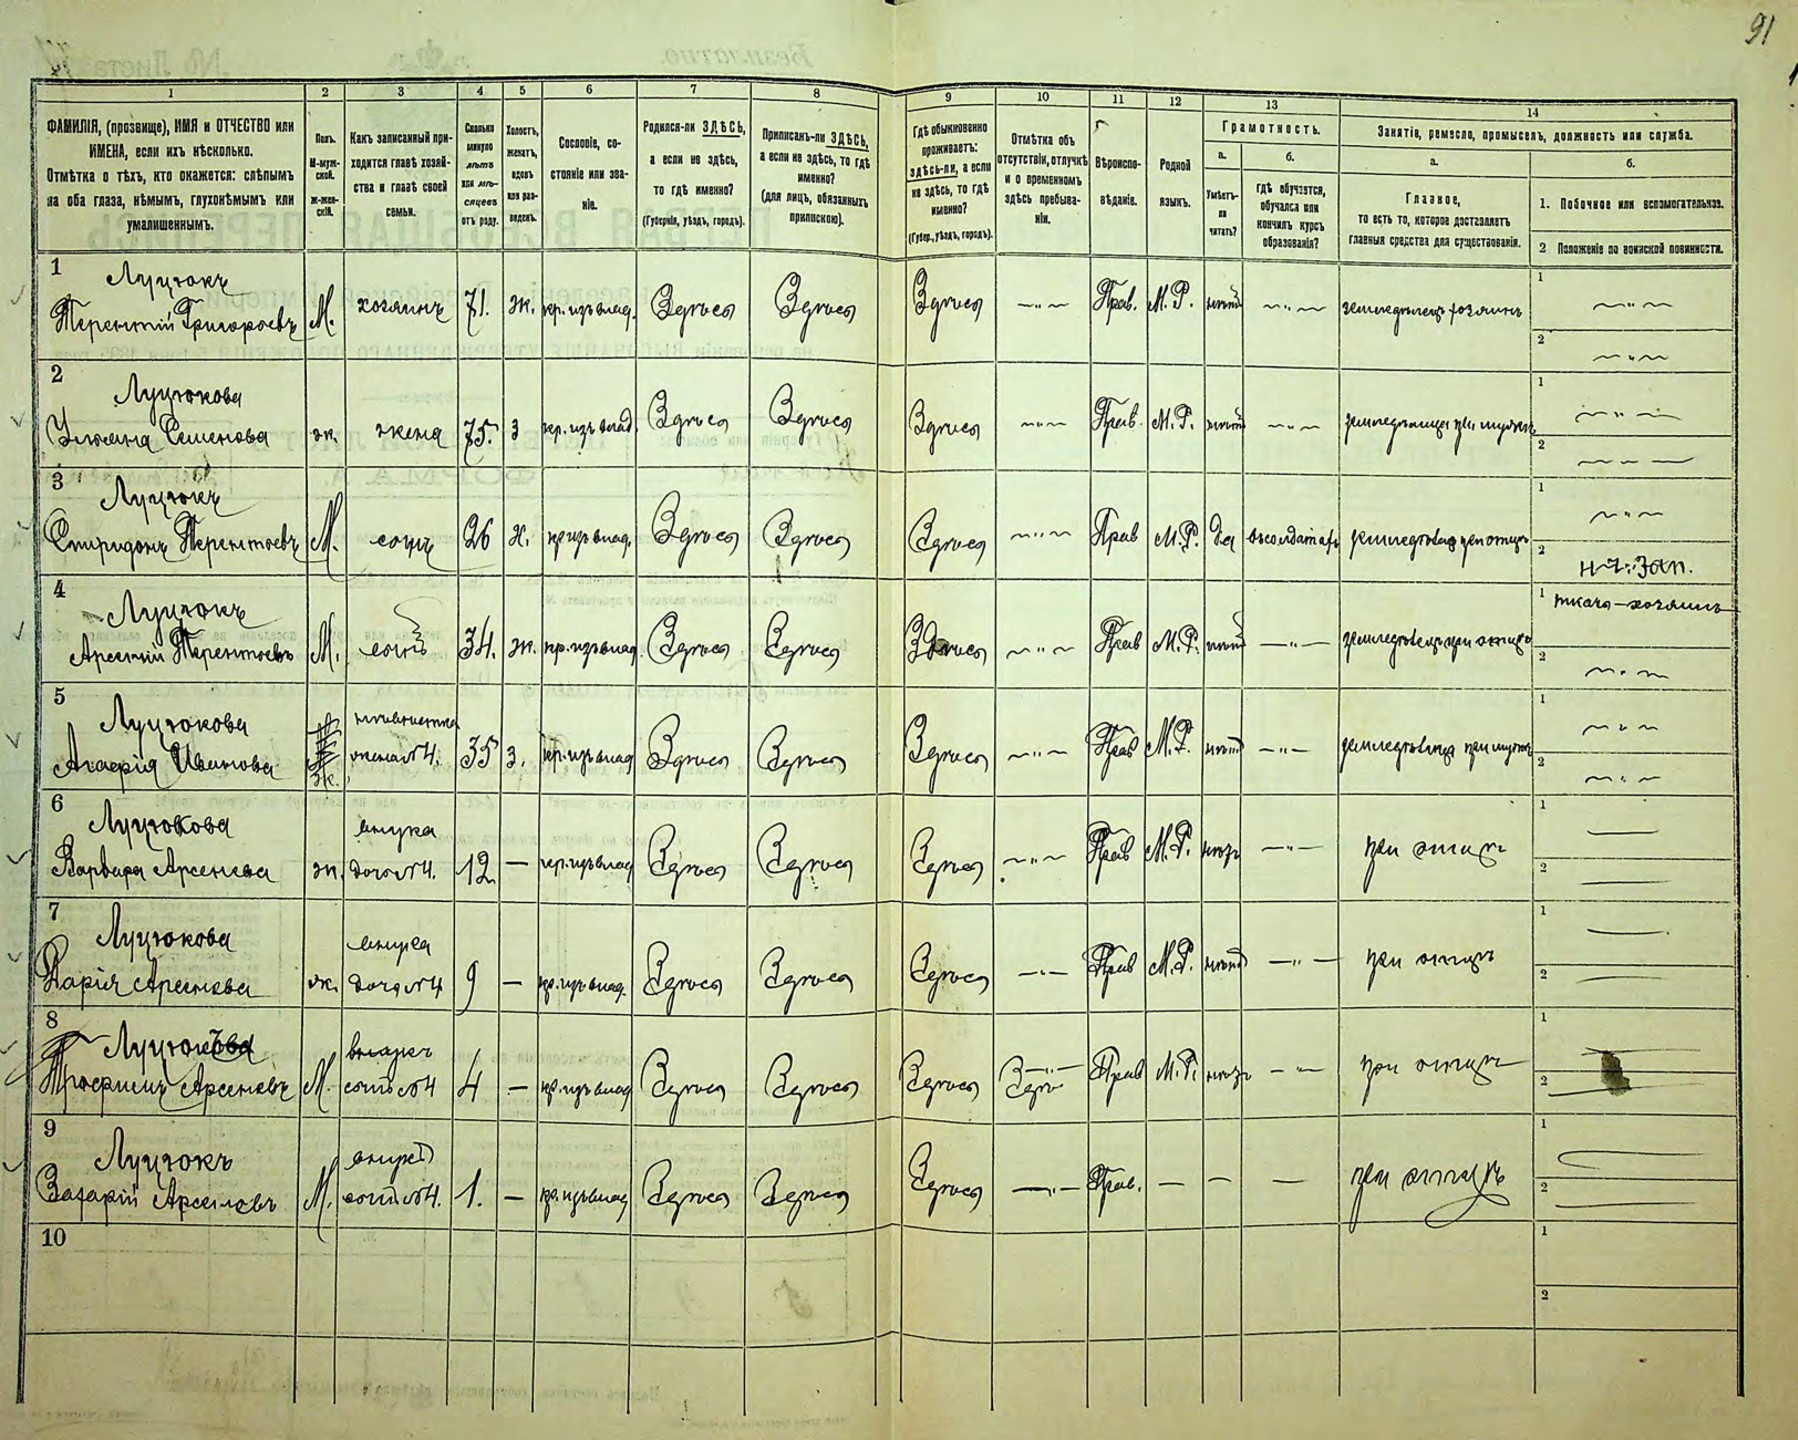 91
1 2 3 4 5 6 7 8 9 10 11 12 13 14
ФАМИЛІЯ, (прозвище), ИМЯ и ОТЧЕСТВО или ИМЕНА, если ихъ нѣсколько.
Отмѣтка о тѣхъ, кто окажется: слѣпымъ на оба глаза, нѣмымъ, глухонѣмымъ или умалишеннымъ.
Полъ.
М-муж-
ской.
Ж-жен-
скій.
Какъ записанный при-
ходится главѣ хозяй-
ства и главѣ своей
семьи.
Сколько
минуло
лѣтъ
или мѣ-
сяцевъ
отъ роду.
Холостъ,
женатъ,
вдовъ
или раз-
веденъ.
Сословіе, со-
стояніе или зва-
ніе.
Родился-ли ЗДѢСЬ,
а если не здѣсь,
то гдѣ именно?
(Губернія, уѣздъ, городъ).
Приписанъ-ли ЗДѢСЬ,
а если не здѣсь, то гдѣ
именно?
(для лицъ, обязанныхъ
припискою).
Гдѣ обыкновенно
проживаетъ:
здѣсь-ли, а если
не здѣсь, то гдѣ
именно?
(Губер., уѣздъ, городъ).
Отмѣтка объ
отсутствіи, отлучкѣ
и о временномъ
здѣсь пребыва-
ніи.
Вѣроиспо-
вѣданіе.
Родной
языкъ.
Грамотность.
а.
Умѣетъ-
ли
читать?
б.
гдѣ обучается,
обучался или
кончилъ курсъ
образованія?
Занятіе, ремесло, промыселъ, должность или служба.
а.
Главное,
то есть то, которое доставляетъ
главныя средства для существованія.
б.
1. Побочное или вспомогательное.
2 Положеніе по воинской повинности.
1 Луцюкъ
Терентій Григорьевъ М. хозяинъ 71. ж. кр. изъ влад. Здѣсь Здѣсь Здѣсь — " — Прав. М. Р. нѣтъ — " — земледѣлецъ хозяинъ
1 — " —
2 — " —
2 Луцюкова
Ульяна Семенова ж. жена 75. з кр. изъ влад. Здѣсь Здѣсь Здѣсь — " — Прав. М. Р. нѣтъ — " — земледѣлица при мужѣ
1 — " —
2 — " —
3 Луцюкъ
Спиридонъ Терентьевъ М. сынъ 26 х. кр. изъ влад. Здѣсь Здѣсь Здѣсь — " — Прав М. Р. да въ солдатахъ земледѣлецъ при отцѣ
1 — " —
2 н. ч. Зап.
4 Луцюкъ
Арсеній Терентьевъ М. сынъ 34. ж. кр. изъ влад. Здѣсь Здѣсь Здѣсь — " — Прав М. Р. нѣтъ — " — земледѣлецъ при отцѣ
1 ткачъ – хозяинъ
2 — " —
5 Луцюкова
Агафія Иванова ж. невѣстка
жена № 4. 35 з. кр. изъ влад Здѣсь Здѣсь Здѣсь — " — Прав М. Р. нѣтъ — " — земледѣлица при мужѣ
1 — " —
2 — " —
6 Луцюкова
Варвара Арсеньева ж. внучка
дочь № 4. 12 — кр. изъ влад Здѣсь Здѣсь Здѣсь — " — Прав М. Р. нѣтъ — " — при отцѣ
1 —
2 —
7 Луцюкова
Дарія Арсеньева ж. внучка
дочь № 4 9 — кр. изъ влад. Здѣсь Здѣсь Здѣсь — " — Прав М. Р. нѣтъ — " — при отцѣ
1 —
2 —
8 Луцюкъ
Трофимъ Арсеньевъ М. внукъ
сынъ № 4 4 — кр. изъ влад Здѣсь Здѣсь Здѣсь — " — Прав М. Р. нѣтъ — " — при отцѣ
1 —
2 —
9 Луцюкъ
Захарій Арсеньевъ М. внукъ
сынъ № 4. 1. — кр. изъ влад Здѣсь Здѣсь Здѣсь — " — Прав. — — — при отцѣ
1 —
2 —
10
1
2